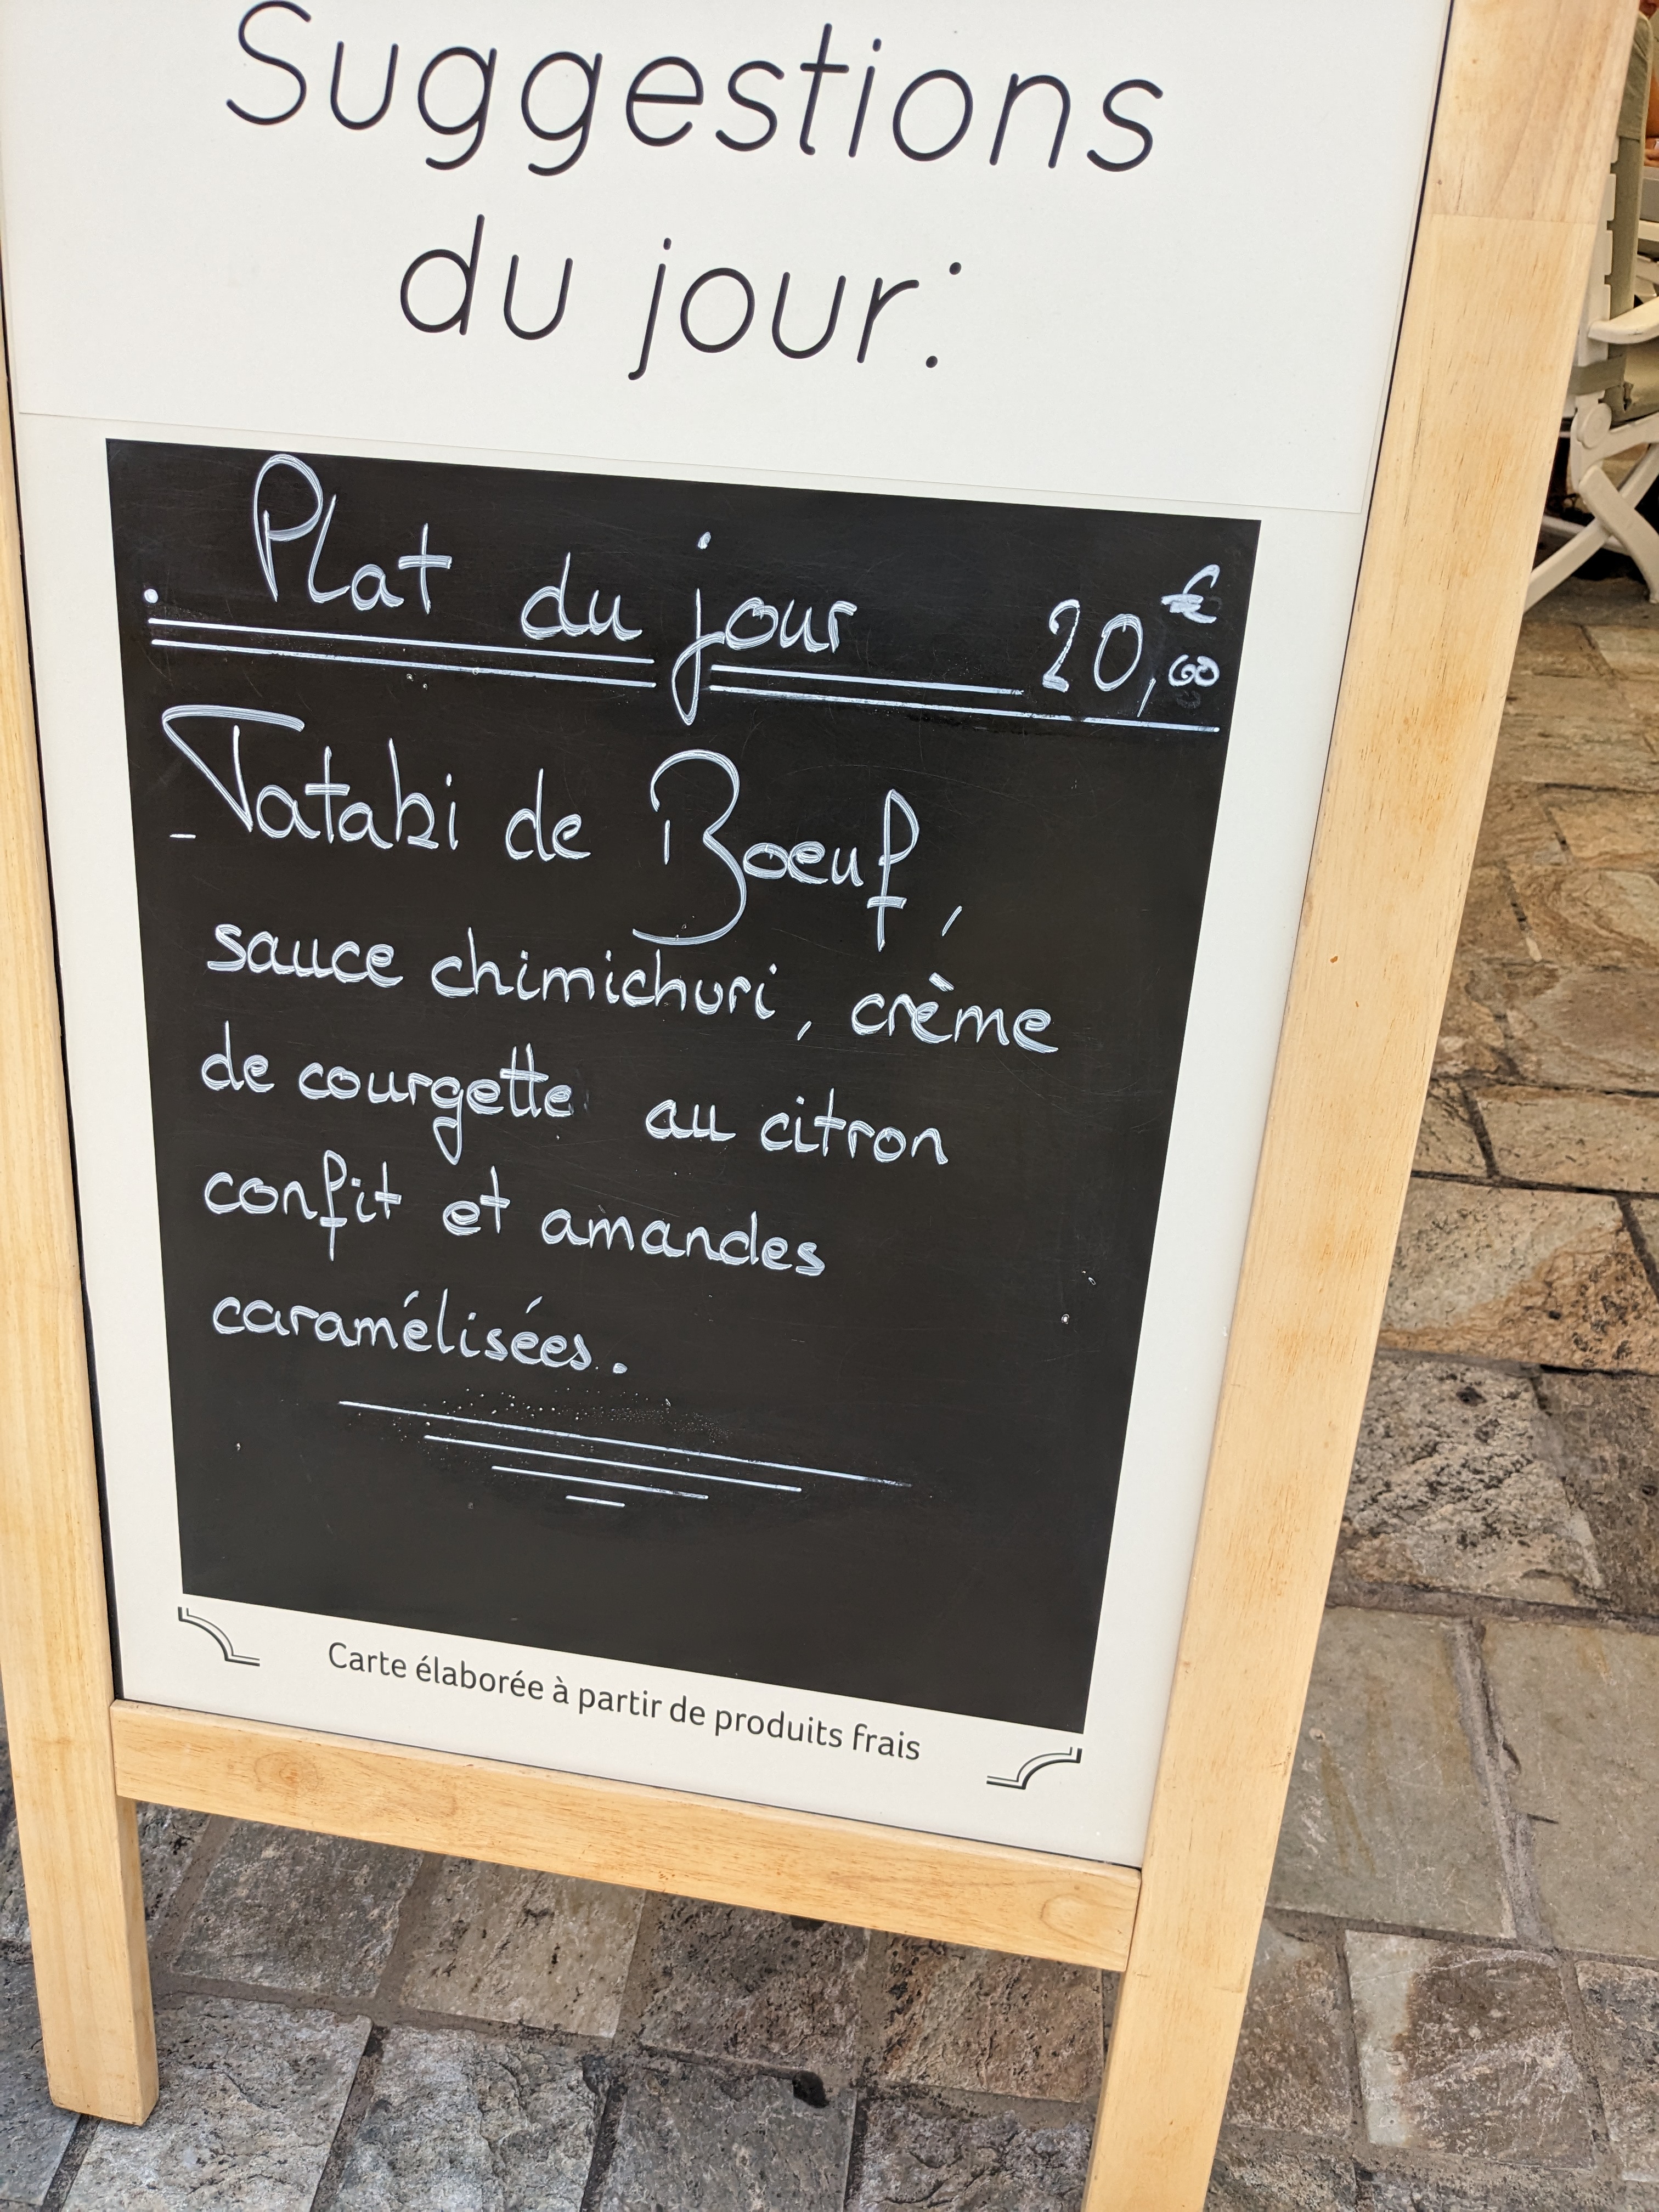 Suggestions
du jour:
. Plat du jour 20,60 €
- Tataki de Boeuf,
sauce chimichuri, crème
de courgette au citron
confit et amandes
caramélisées.
Carte élaborée à partir de produits frais